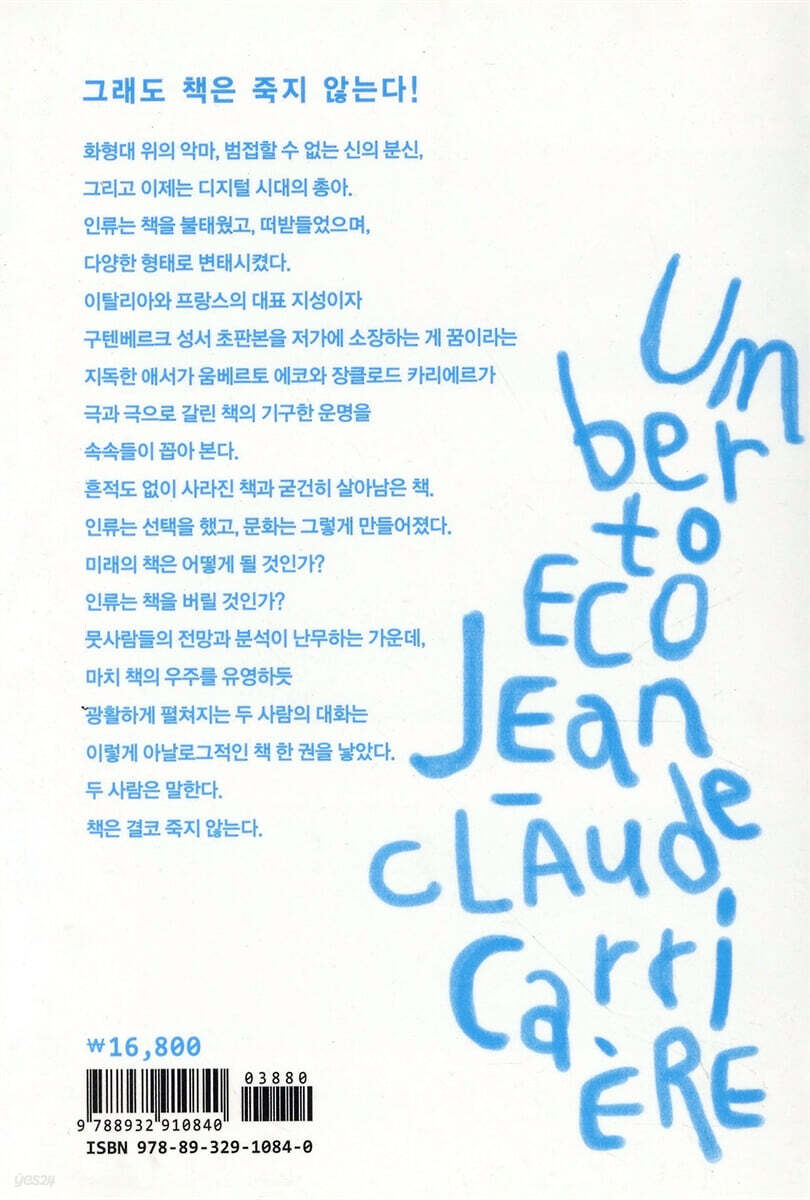 그래도 책은 죽지 않는다!
화형대 위의 악마, 범접할 수 없는 신의 분신,
그리고 이제는 디지털 시대의 총아.
인류는 책을 불태웠고, 떠받들었으며,
다양한 형태로 변태시켰다.
이탈리아와 프랑스의 대표 지성이자
구텐베르크 성서 초판본을 저가에 소장하는 게 꿈이라는
지독한 애서가 움베르토 에코와 장클로드 카리에르가
극과 극으로 갈린 책의 기구한 운명을
속속들이 꼽아 본다.
흔적도 없이 사라진 책과 굳건히 살아남은 책.
인류는 선택을 했고, 문화는 그렇게 만들어졌다.
미래의 책은 어떻게 될 것인가?
인류는 책을 버릴 것인가?
뭇사람들의 전망과 분석이 난무하는 가운데,
마치 책의 우주를 유영하듯
광활하게 펼쳐지는 두 사람의 대화는
이렇게 아날로그적인 책 한 권을 낳았다.
두 사람은 말한다.
책은 결코 죽지 않는다.
Um
ber
to
ECO
JEan
-
CLAude
Carri
ÈRE
₩16,800
03880
9 788932 910840
ISBN 978-89-329-1084-0
yes24